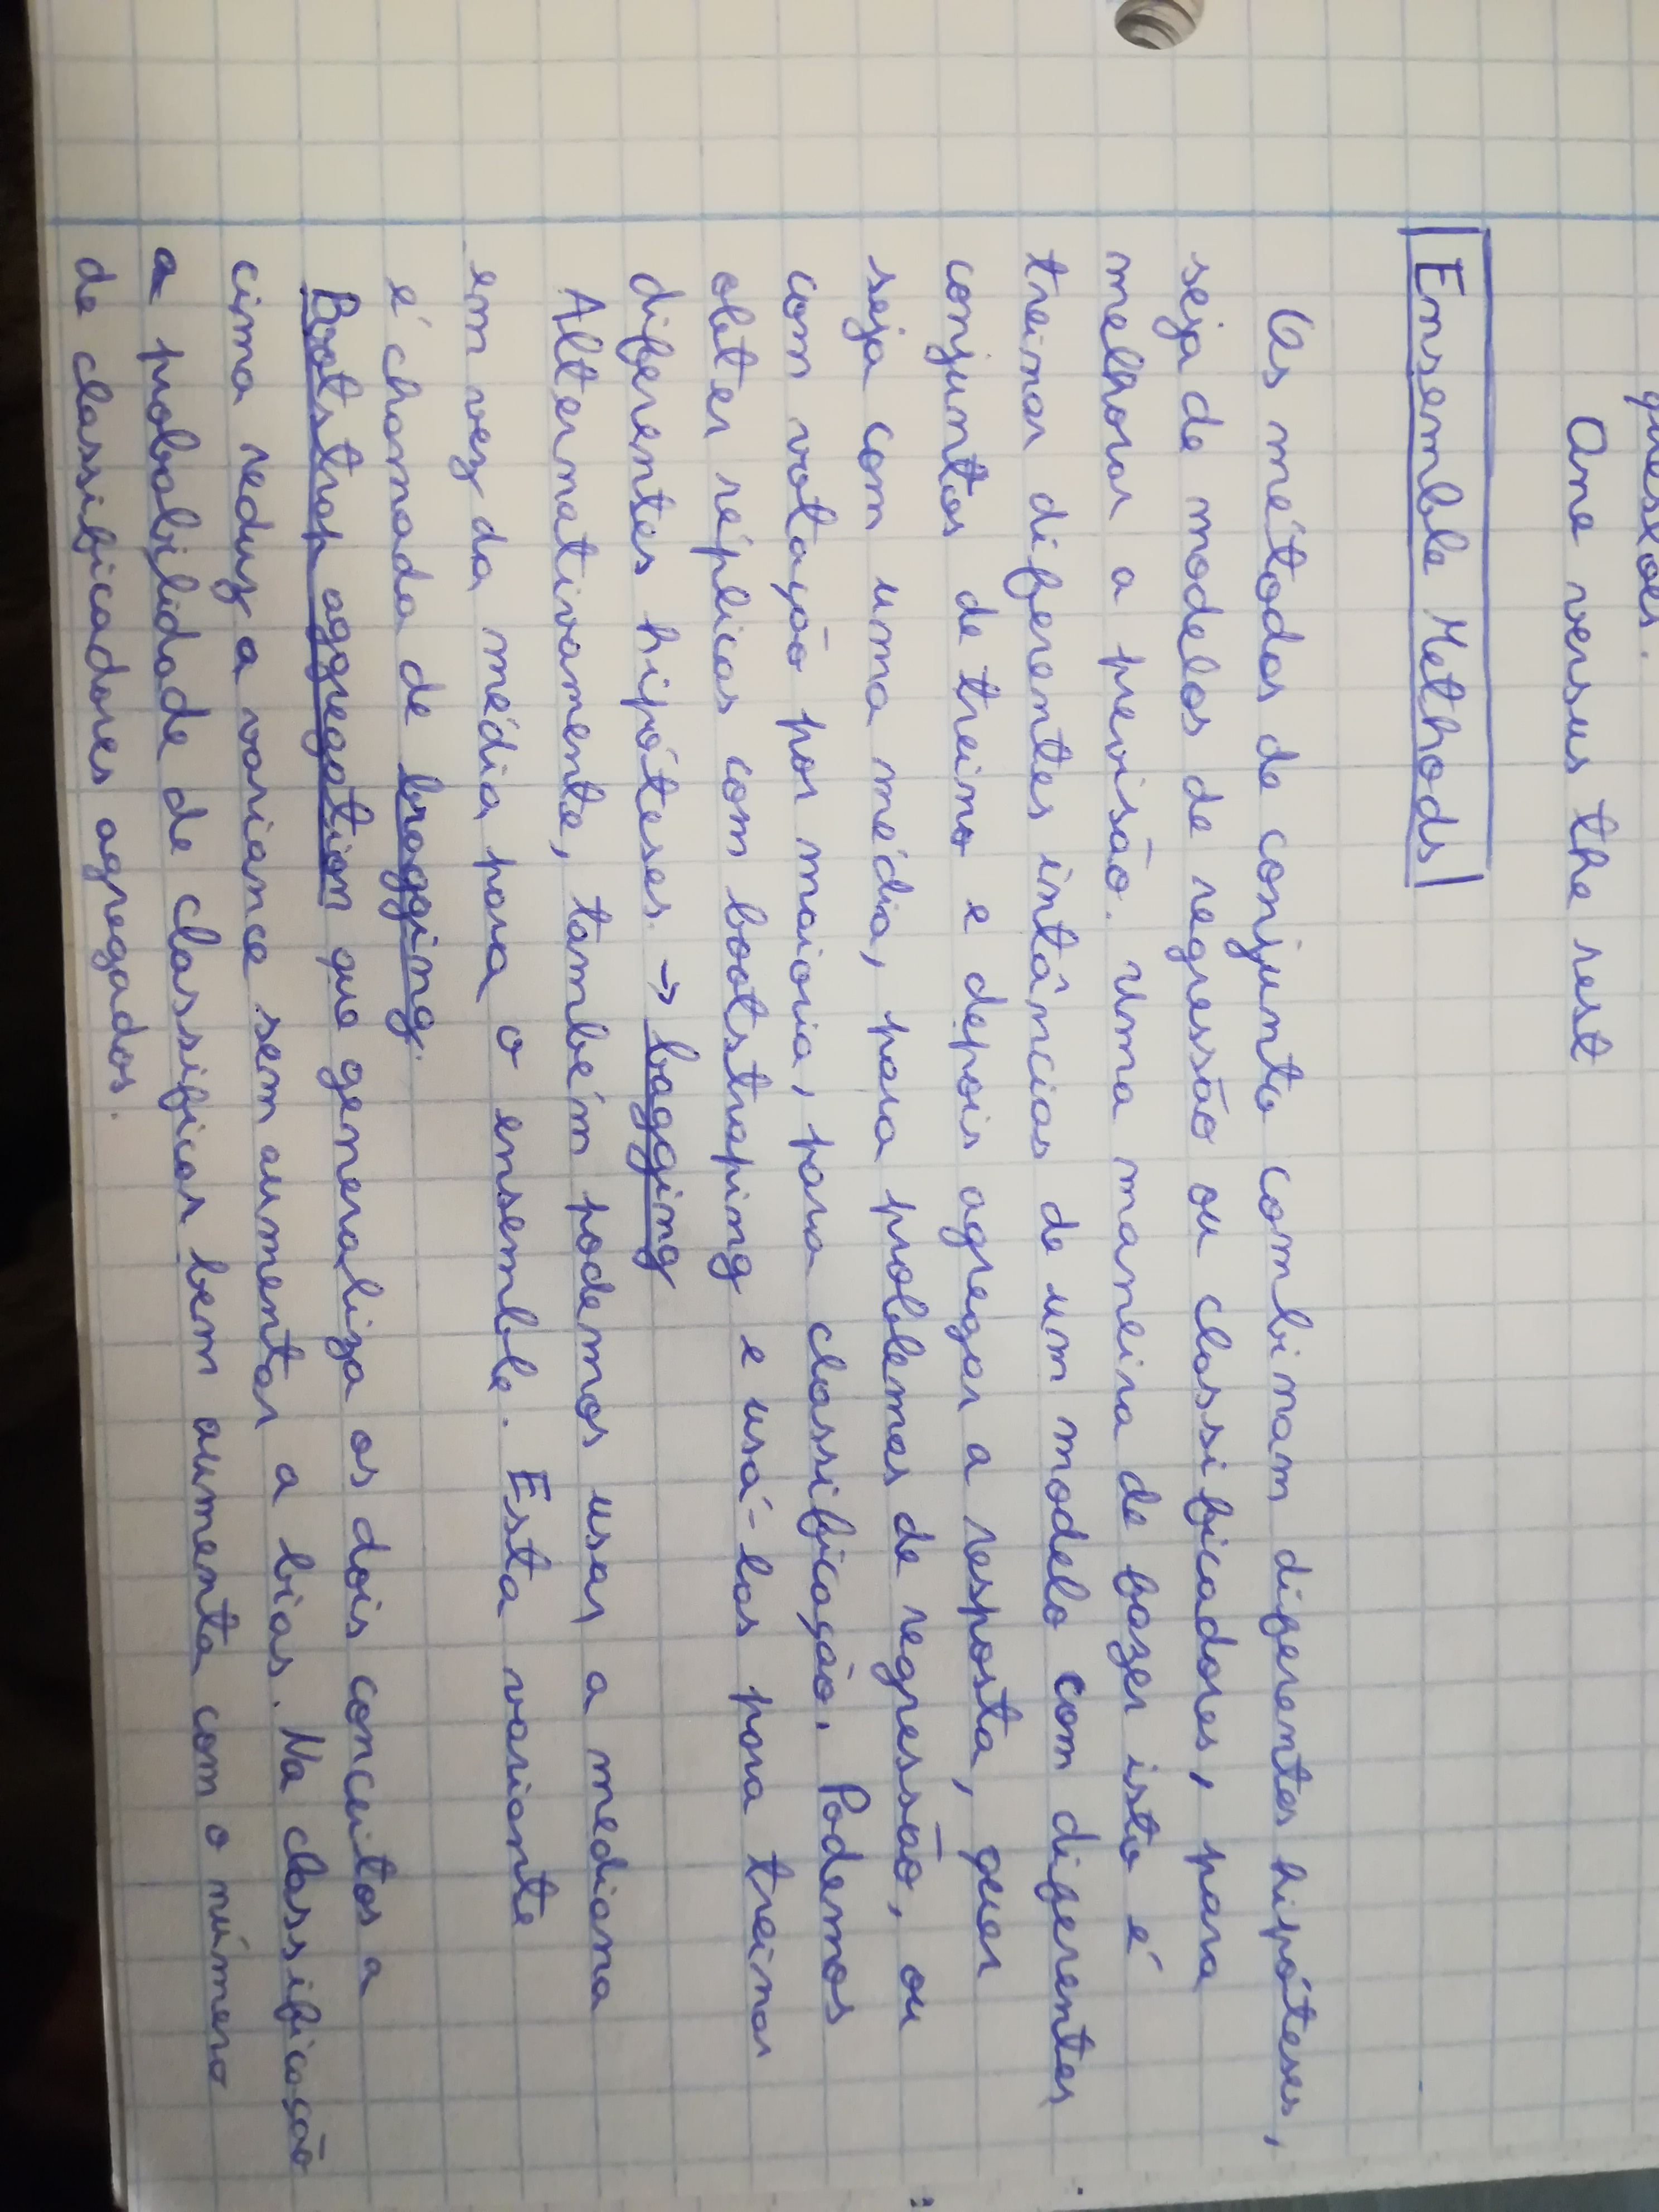 questões.
One versus the rest
Ensemble Methods
Os métodos de conjunto combinam diferentes hipóteses,
seja de modelos de regressão ou classificadores, para
melhorar a previsão. Uma maneira de fazer isto é
treinar diferentes intâncias de um modelo com diferentes
conjuntos de treino e depois agregar a resposta, quer
seja com uma média, para problemas de regressão, ou
com votação por maioria, para classificação. Podemos
obter réplicas com bootstraping e usá-las para treinar
diferentes hipóteses. → bagging
Alternativamente, também podemos usar a mediana
em vez da média para o ensemble. Esta variante
é chamada de bragging.
Bootstrap aggregation que generaliza os dois conceitos a
cima reduz a variance sem aumentar a bias. Na classificação
a probabilidade de classificar bem aumenta com o número
de classificadores agregados.